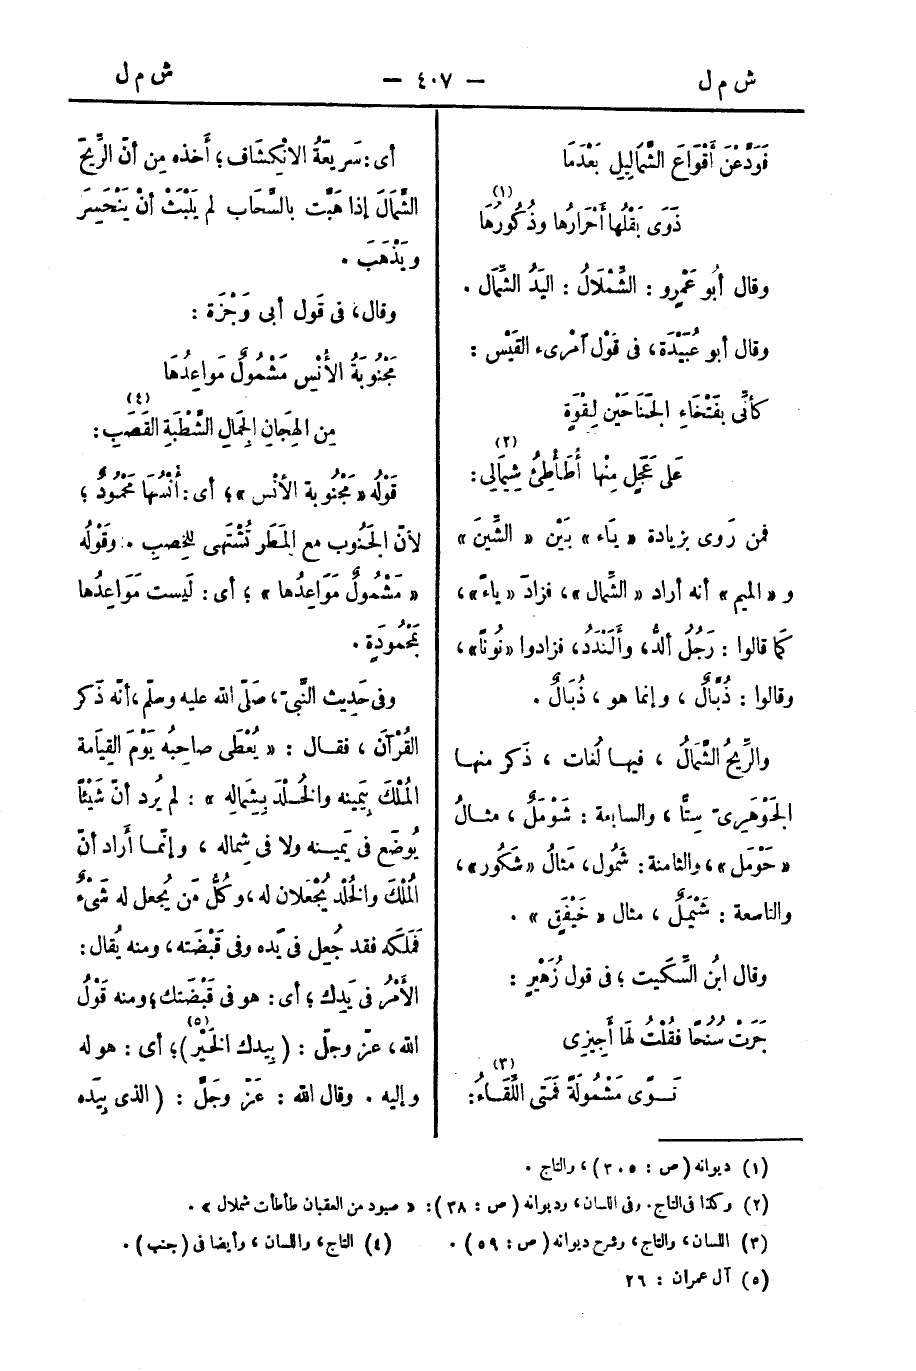 ش م ل
— ٤٠٧ —
ش م ل
فَوَدَّعْنَ أَقْوَاعَ الشَّمَالِيلِ بَعْدَمَا
ذَوَى بَقْلُها أَحْرَارُها وذُكُورُهَا (١)
وقال أَبُو عَمْرٍو : الشِّمْلَالُ : اليَدُ الشِّمَال .
وقال أبو عُبَيْدَة، فى قَوْل آمْرِىء القَيْس :
كأَنِّى بفَتْخَاءِ الجَنَاحَيْن لِقْوَةٍ
عَلى عَجَلٍ مِنْها أُطَأْطِئُ شِيمَالِى: (٢)
فمن رَوى بزيادة « يَاء » بَيْن « الشِّينَ »
و « الميم » أنه أراد « الشِّمال »، فزادَ « ياءً »،
كما قالوا : رَجُلٌ ألدُّ، وأَلَنْدَدُ، فزادوا «نُونًا»،
وقالوا : ذُبَّالٌ ، وإنما هو ، ذُبَالٌ .
والرِّيحُ الشَّمَالُ ، فيهـا لُغات ، ذَكر منهـا
الجَوْهَرِىّ سِتًّا ، والسابعة : شَوْمَلٌ ، مثـالُ
« حَوْمل »، والثامنة: شَمُول، مَثالُ «شَكُور»،
والتاسعة : شَيْمَلٌ ، مثال « خَيْفَقٍ » .
وقال ابنُ السِّكّيت ؛ فى قول زُهَيْرٍ :
جَرَتْ سُنُحًا فقُلْتُ لهَا أَجِيزِى
نَــوًى مَشْمُولَةً فمَتَى اللِّقَـاءُ: (٣)
أى : سَرِيعَةُ الانْكِشَاف ؛ أَخذه مِن أنّ الرِّيحَ
الشَّمَالَ إذا هَبَّت بالسَّحَاب لم يَلْبَثْ أنْ يَنْحَسِرَ
ويَذْهَبَ .
وقال، فى قَول أبى وَجْزَة :
مَجْنُوبَةُ الأُنْسِ مَشْمُولٌ مَواعِدُهَا
مِن الهِجَانِ الجِمالِ الشَّطْبَةِ القَصَبِ: (٤)
قَوْلُه « مَجْنُوبة الأُنْس » ؛ أى : أُنْسُهَا مَحْمُودٌ ؛
لأنّ الجَنُوب مع المَطَر تُشْتَهى للخِصب . وقَوْلُه
« مَشْمُولٌ مَوَاعِدُها » ؛ أى : لَيست مَوَاعِدُها
بَمَحْمُودَةٍ .
وفى حَدِيث النَّبِىّ، صَلّى الله عليه وسلّم، أنّه ذَكر
القُرْآنَ ، فقـال : « يُعْطَى صاحِبُه يَوْمَ القِيَامة
المُلْكَ بيَمِينه والخُـلْدَ بِشِمَاله » : لم يُرد أنّ شَيْئًا
يُوضَع فى يَمِيـنه ولا فى شِماله ، وإنّمـا أَراد أنّ
المُلْكَ والخُلْد يُجْعَلان له، وكُلُّ مَن يُجعل له شَىْءٌ
فَمَلَكه فقد جُعِل فى يَده وفى قَبْضَته، ومنه يُقال :
الأَمْرُ فى يَدِك ؛ أى : هو فى قَبْضَتك؛ ومنه قَوْلُ
الله، عزّ وجلّ : ( بِيدك الخَيْر ) (٥) ؛ أى : هو له
وإليه . وقال الله : عَزّ وجَلَّ : ( الذى بِيَده
(١) ديوانه ( ص : ٣٠٥ ) ، والتاج .
(٢) وكذا فى التاج . وفى اللسان، وديوانه ( ص : ٣٨ ) : « صيود من العقبان طأطأت شملال » .
(٣) اللسان، والتاج، وشرح ديوانه ( ص : ٥٩ ) . (٤) التاج، واللسان ، وأيضا فى ( جنب ) .
(٥) آل عمران : ٢٦